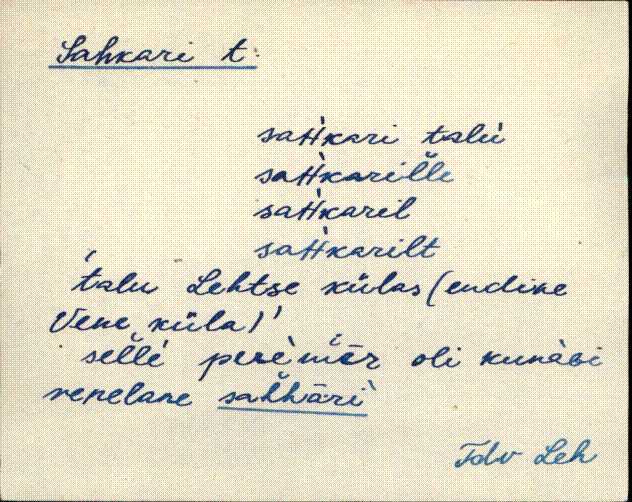 Sahkari t.
saH̀kari talù
saH̀karil̆le
saH̀karil
saH̀karilt
'talu Lehtse külas (endine
Vene küla)'
sĕllè perèmēr oli kunàɢi
venelane săhhārì
Tdv Leh